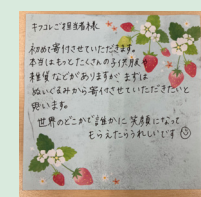 キフコレご担当者様
初めて寄付させていただきます。
本当はもっとたくさんの子供服や
雑貨などがありますが、まずは
ぬいぐるみから寄付させていただきたいと
思います。
世界のどこかで誰かに笑顔になって
もらえたらうれしいです